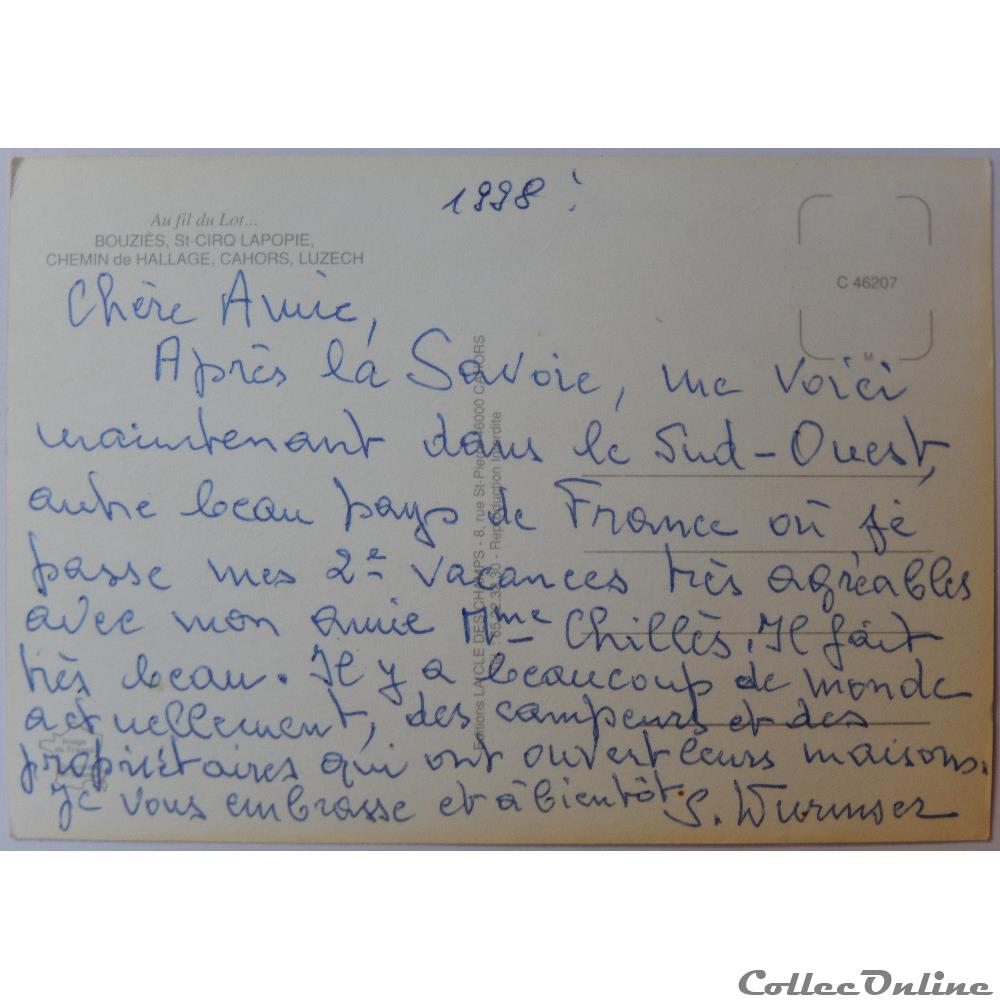 1998 !
Au fil du Lot...
BOUZIÈS, St-CIRQ LAPOPIE,
CHEMIN de HALLAGE, CAHORS, LUZECH
C 46207
M
Chère Amie,
Après la Savoie, me voici
maintenant dans le Sud-Ouest,
autre beau pays de France où je
passe mes 2e vacances très agréables
avec mon amie Mme Chillès. Il fait
très beau. Il y a beaucoup de monde
actuellement, des campeurs et des
propriétaires qui ont ouvert leurs maisons.
Je vous embrasse et à bientôt. S. Wurmser
Editions LA CLE DES CHAMPS - 8, rue St-Pierre 46000 CAHORS
- Reproduction Interdite
CollecOnline